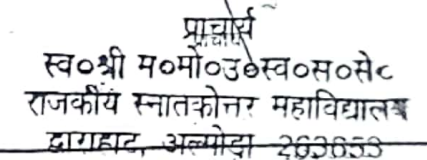 प्राचार्य
स्व०श्री म०मो०उ०स्व०स०से०
राजकीय स्नातकोत्तर महाविद्यालय
द्वाराहाट, अल्मोड़ा 263653